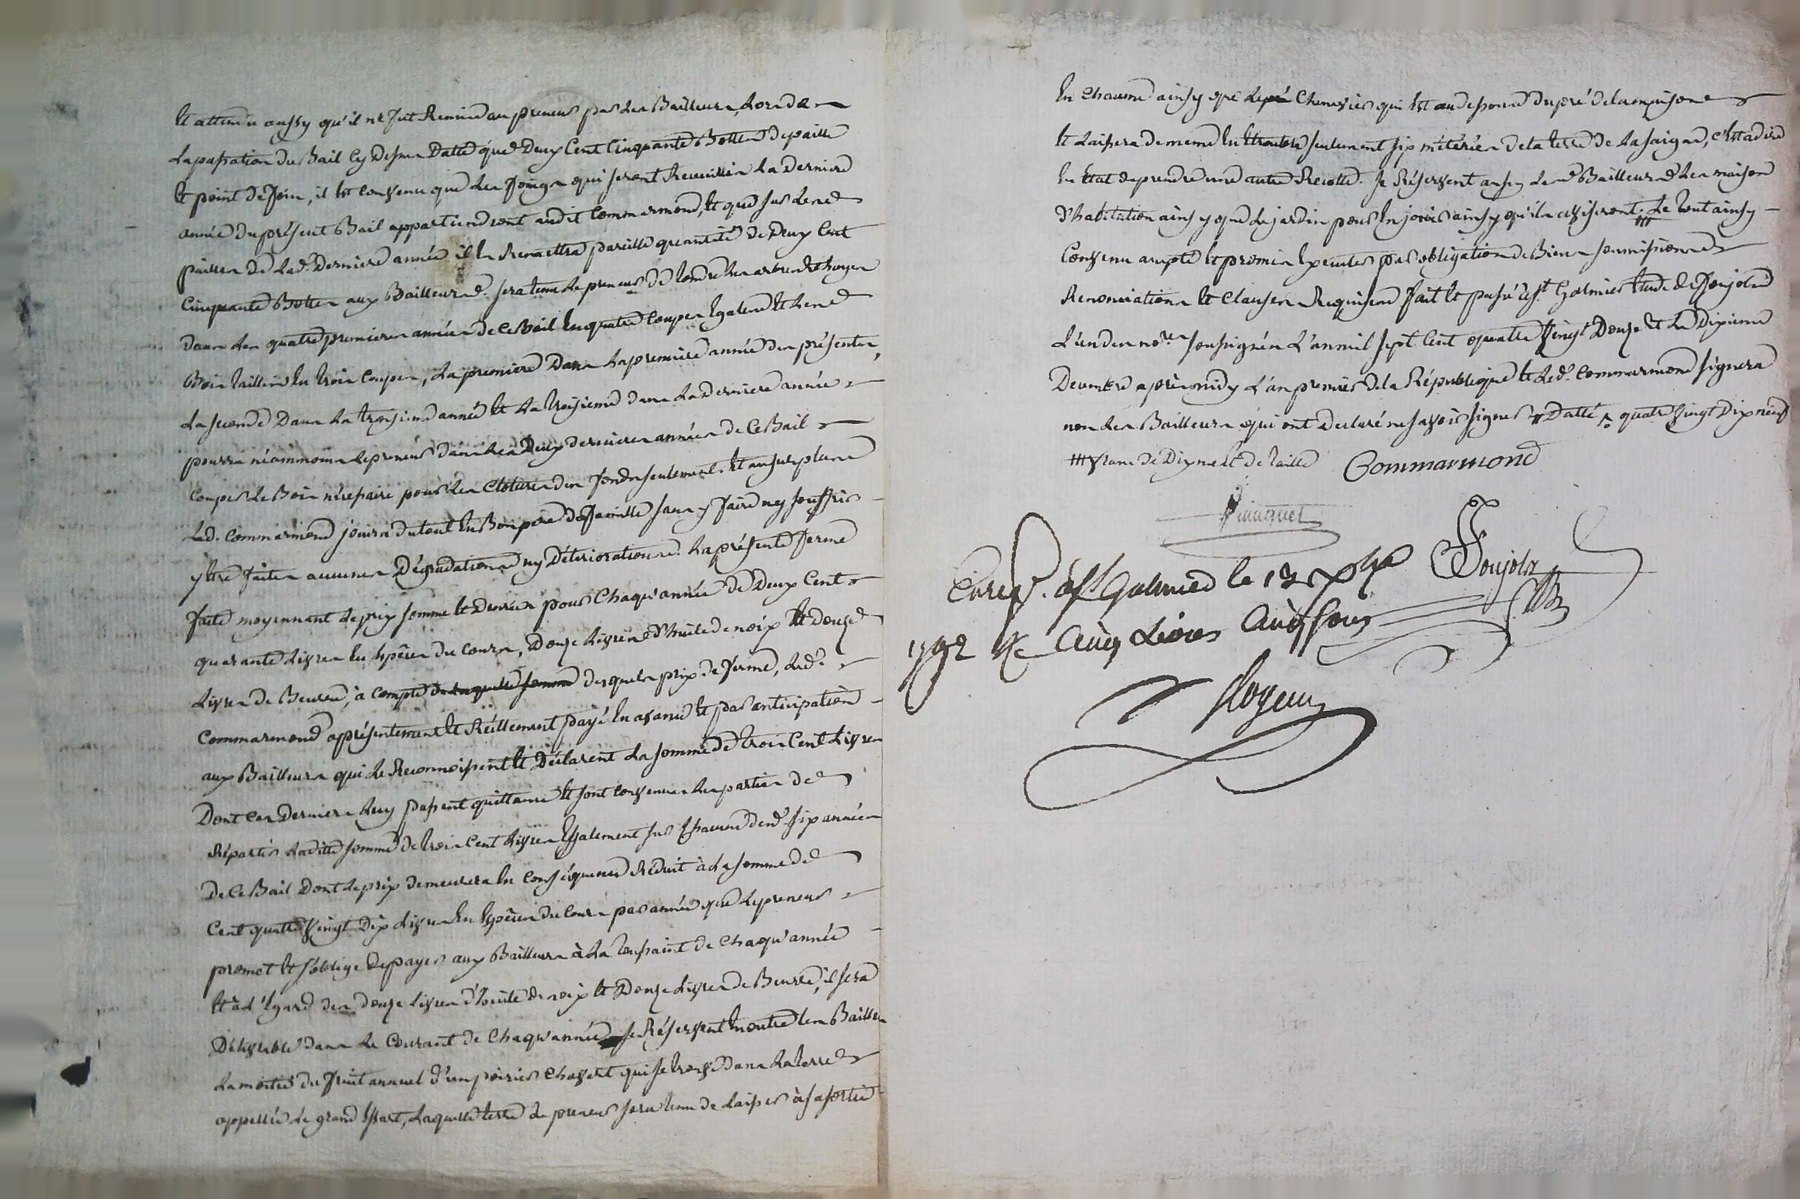 Et attendu aussy qu'il ne fut Remis au preneur par les Bailleurs, lors de
la passation du Bail cy dessus Datté que Deux Cent Cinquante Bottes de paille
et point de foin, il est convenu que les foings qui seront Recueillis la derniere
année du présent Bail appartiendront audit Commarmond, et que sur les
pailles de lad. Derniere année il en Remettra pareille quantité de Deux Cent
Cinquante Bottes aux Bailleurs. sera tenu le preneur de tondre les arbres
dans les quatre premieres années de ce Bail en quatre coupes Egales et les
Bois taillis en trois coupes, la premiere dans la premiere année du présent,
la seconde Dans la troisieme année et la troisieme dans la derniere année
pourra néammoins le preneur dans les Deux dernieres années de ce Bail
couper le Bois nécessaire pour les clotures du fonds seulement. et au surplus
led. Commarmond jouira du tout en Bon pere de famille sans y faire ny souffrir
y être faites aucunes Dégradations ny Déteriorations. la présente ferme
faite moyennant le prix somme et Deniers pour chaqu'année de Deux Cent
quarante Livres en Espèces du cours, Douze Livres d'huile de noix et douze
Livres de Beurre, à compte desquels prix de ferme, led.
Commarmond a présentement et Réellement payé en avance et par anticipation
aux Bailleurs qui le Reconnoissent et Déclarent la somme de trois Cent Livres
Dont ces Derniers luy passent quittance et sont convenues les parties de
Répartir ladite somme de trois Cent Livres Egalement sur chacune des six années
de ce Bail Dont le prix demeurera en conséquence Réduit à la somme de
Cent quatre Vingt Dix Livres en Espèces du cours par année que le preneur
promet et s'oblige de payer aux Bailleurs à la toussaint de chaqu'année
et à l'égard des douze Livres d'huile de noix et Douze Livres de Beurre, il sera
Délivrable dans le courant de chaqu'année se Réservent en outre les Bailleurs
la moitié du fruit annuel d'un poirier qui se trouve Dans la terre
appellée le grand Essart, laquelle terre le preneur sera tenu de laisser à sa sortie
En chaume ainsy que le Chenevier qui est au dessous du pré de la maison
et laissera de meme en seulement six méterées de la terre de la, c'est adire
en Etat de prendre une autre Recolte. se Réservent aussy les Bailleurs les maison
d'habitation ainsy que le jardin pour en jouir ainsy qu'ils aviseront, Le tout ainsy
Convenu accepté et promis Executer par obligation de Biens soumissions
Renonciations et Clauses Requises fait et passé à St Galmier Etude de Foujols
l'un des nores soussignés L'an mil sept Cent quatre Vingt Douze et le Dixieme
Decembre après midy L'an premier de la République et led. Commarmond signera
non les Bailleurs qui ont Declaré ne savoir signer Datté, quatre Vingt Dix neuf
franc de Dixmes et de taille Commarmond
Foujols
Enreg. à St Galmier le 12 Xbre
1792 Rc Cinq Livres Cinq Sous